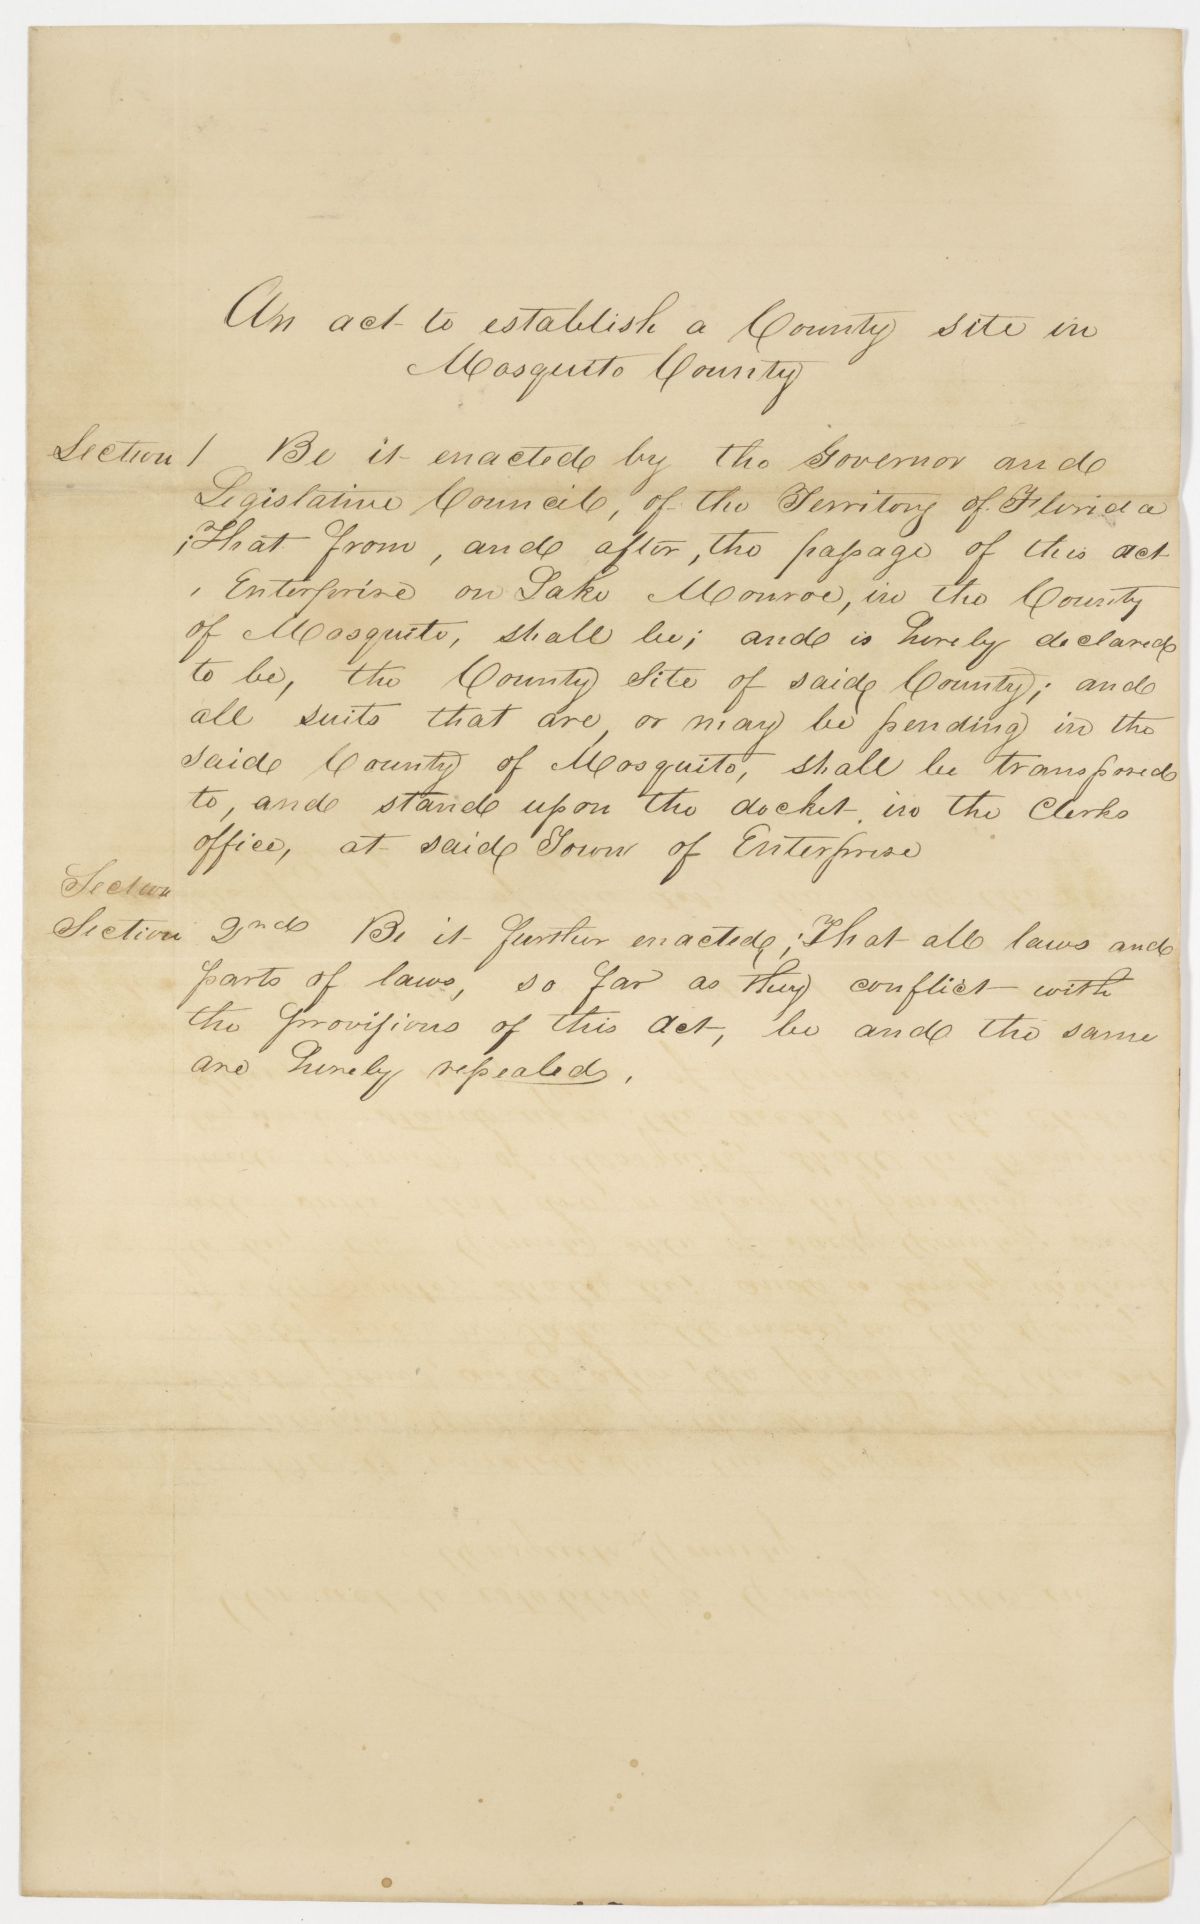 An act to establish a County site in
Mosquito County
Section 1 Be it enacted by the Governor and
Legislative Council, of the Territory of Florida
; That from, and after, the passage of this act
, Enterprise on Lake Monroe, in the County
of Mosquito, shall be; and is hereby declared
to be, the County Site of said County; and
all suits that are, or may be pending in the
said County of Mosquito, shall be transposed
to, and stand upon the docket, in the Clerks
office, at said Town of Enterprise
Section
Section 2nd Be it further enacted, ; That all laws and
parts of laws, so far as they conflict with
the provisions of this act, be and the same
are hereby repealed.